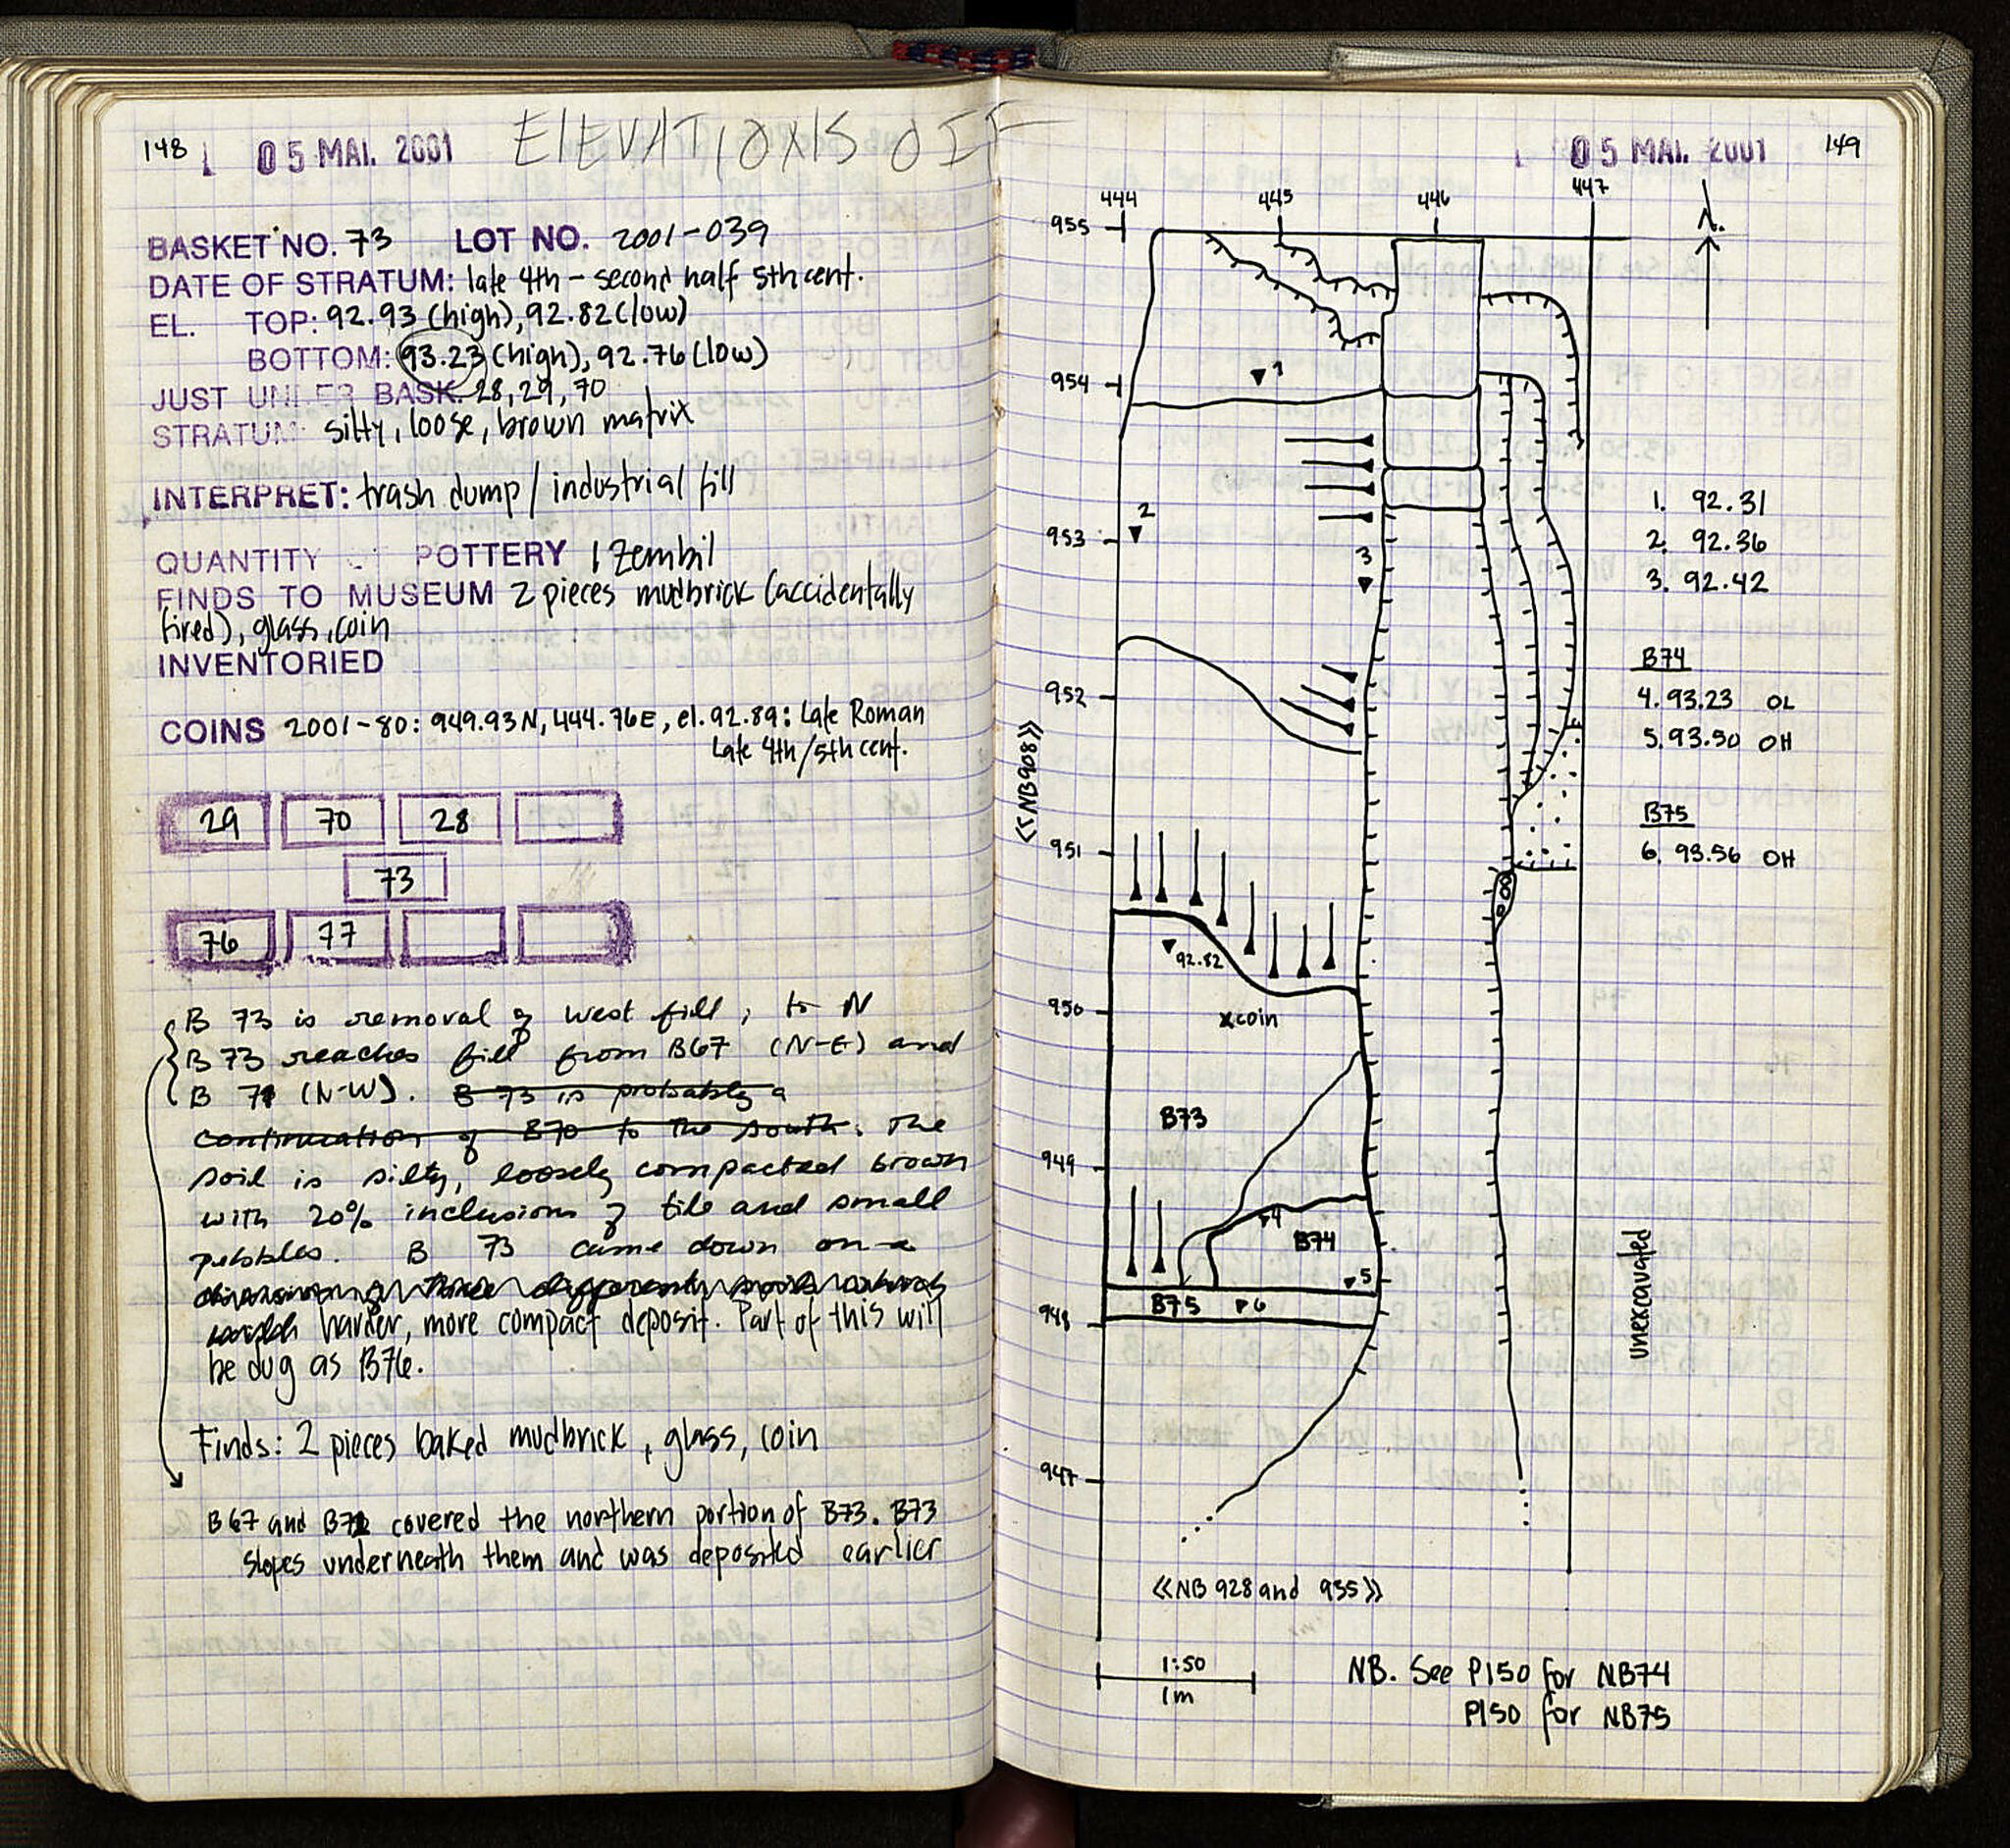 148
05 MAI. 2001
ELEVATIONS OFF
BASKET NO. 73 LOT NO. 2001-039
DATE OF STRATUM: late 4th - second half 5th cent.
EL. TOP: 92.93 (high), 92.82 (low)
BOTTOM: 93.23 (high), 92.76 (low)
JUST UNDER BASK. 28, 29, 70
STRATUM: silty, loose, brown matrix
INTERPRET: trash dump / industrial fill
QUANTITY OF POTTERY 1 Zembil
FINDS TO MUSEUM 2 pieces mudbrick (accidentally
fired), glass, coin
INVENTORIED
COINS 2001-80: 949.93N, 444.76E, el. 92.89: Late Roman
Late 4th/5th cent.
29 70 28
73
76 77
B 73 is removal of west fill; to N
B 73 reaches fill from B67 (N-E) and
B 71 (N-W). B 73 is probably a
continuation of B70 to the south. The
soil is silty, loosely compacted brown
with 20% inclusions of tile and small
pebbles. B 73 came down on a
harder, more compact deposit. Part of this will
be dug as B76.
Finds: 2 pieces baked mudbrick, glass, coin
B67 and B72 covered the northern portion of B73. B73
slopes underneath them and was deposited earlier
05 MAI. 2001
149
444 445 446 447
N.
955
954
953
952
951
950
949
948
947
1
2
3
<<NB908>>
1. 92.31
2. 92.36
3. 92.42
B74
4. 93.23 OL
5. 93.50 OH
B75
6. 93.56 OH
92.82
x coin
B73
4
B74
5
B75 6
Unexcavated
<<NB 928 and 935>>
1:50
1m
NB. See P150 for NB74
P150 for NB75